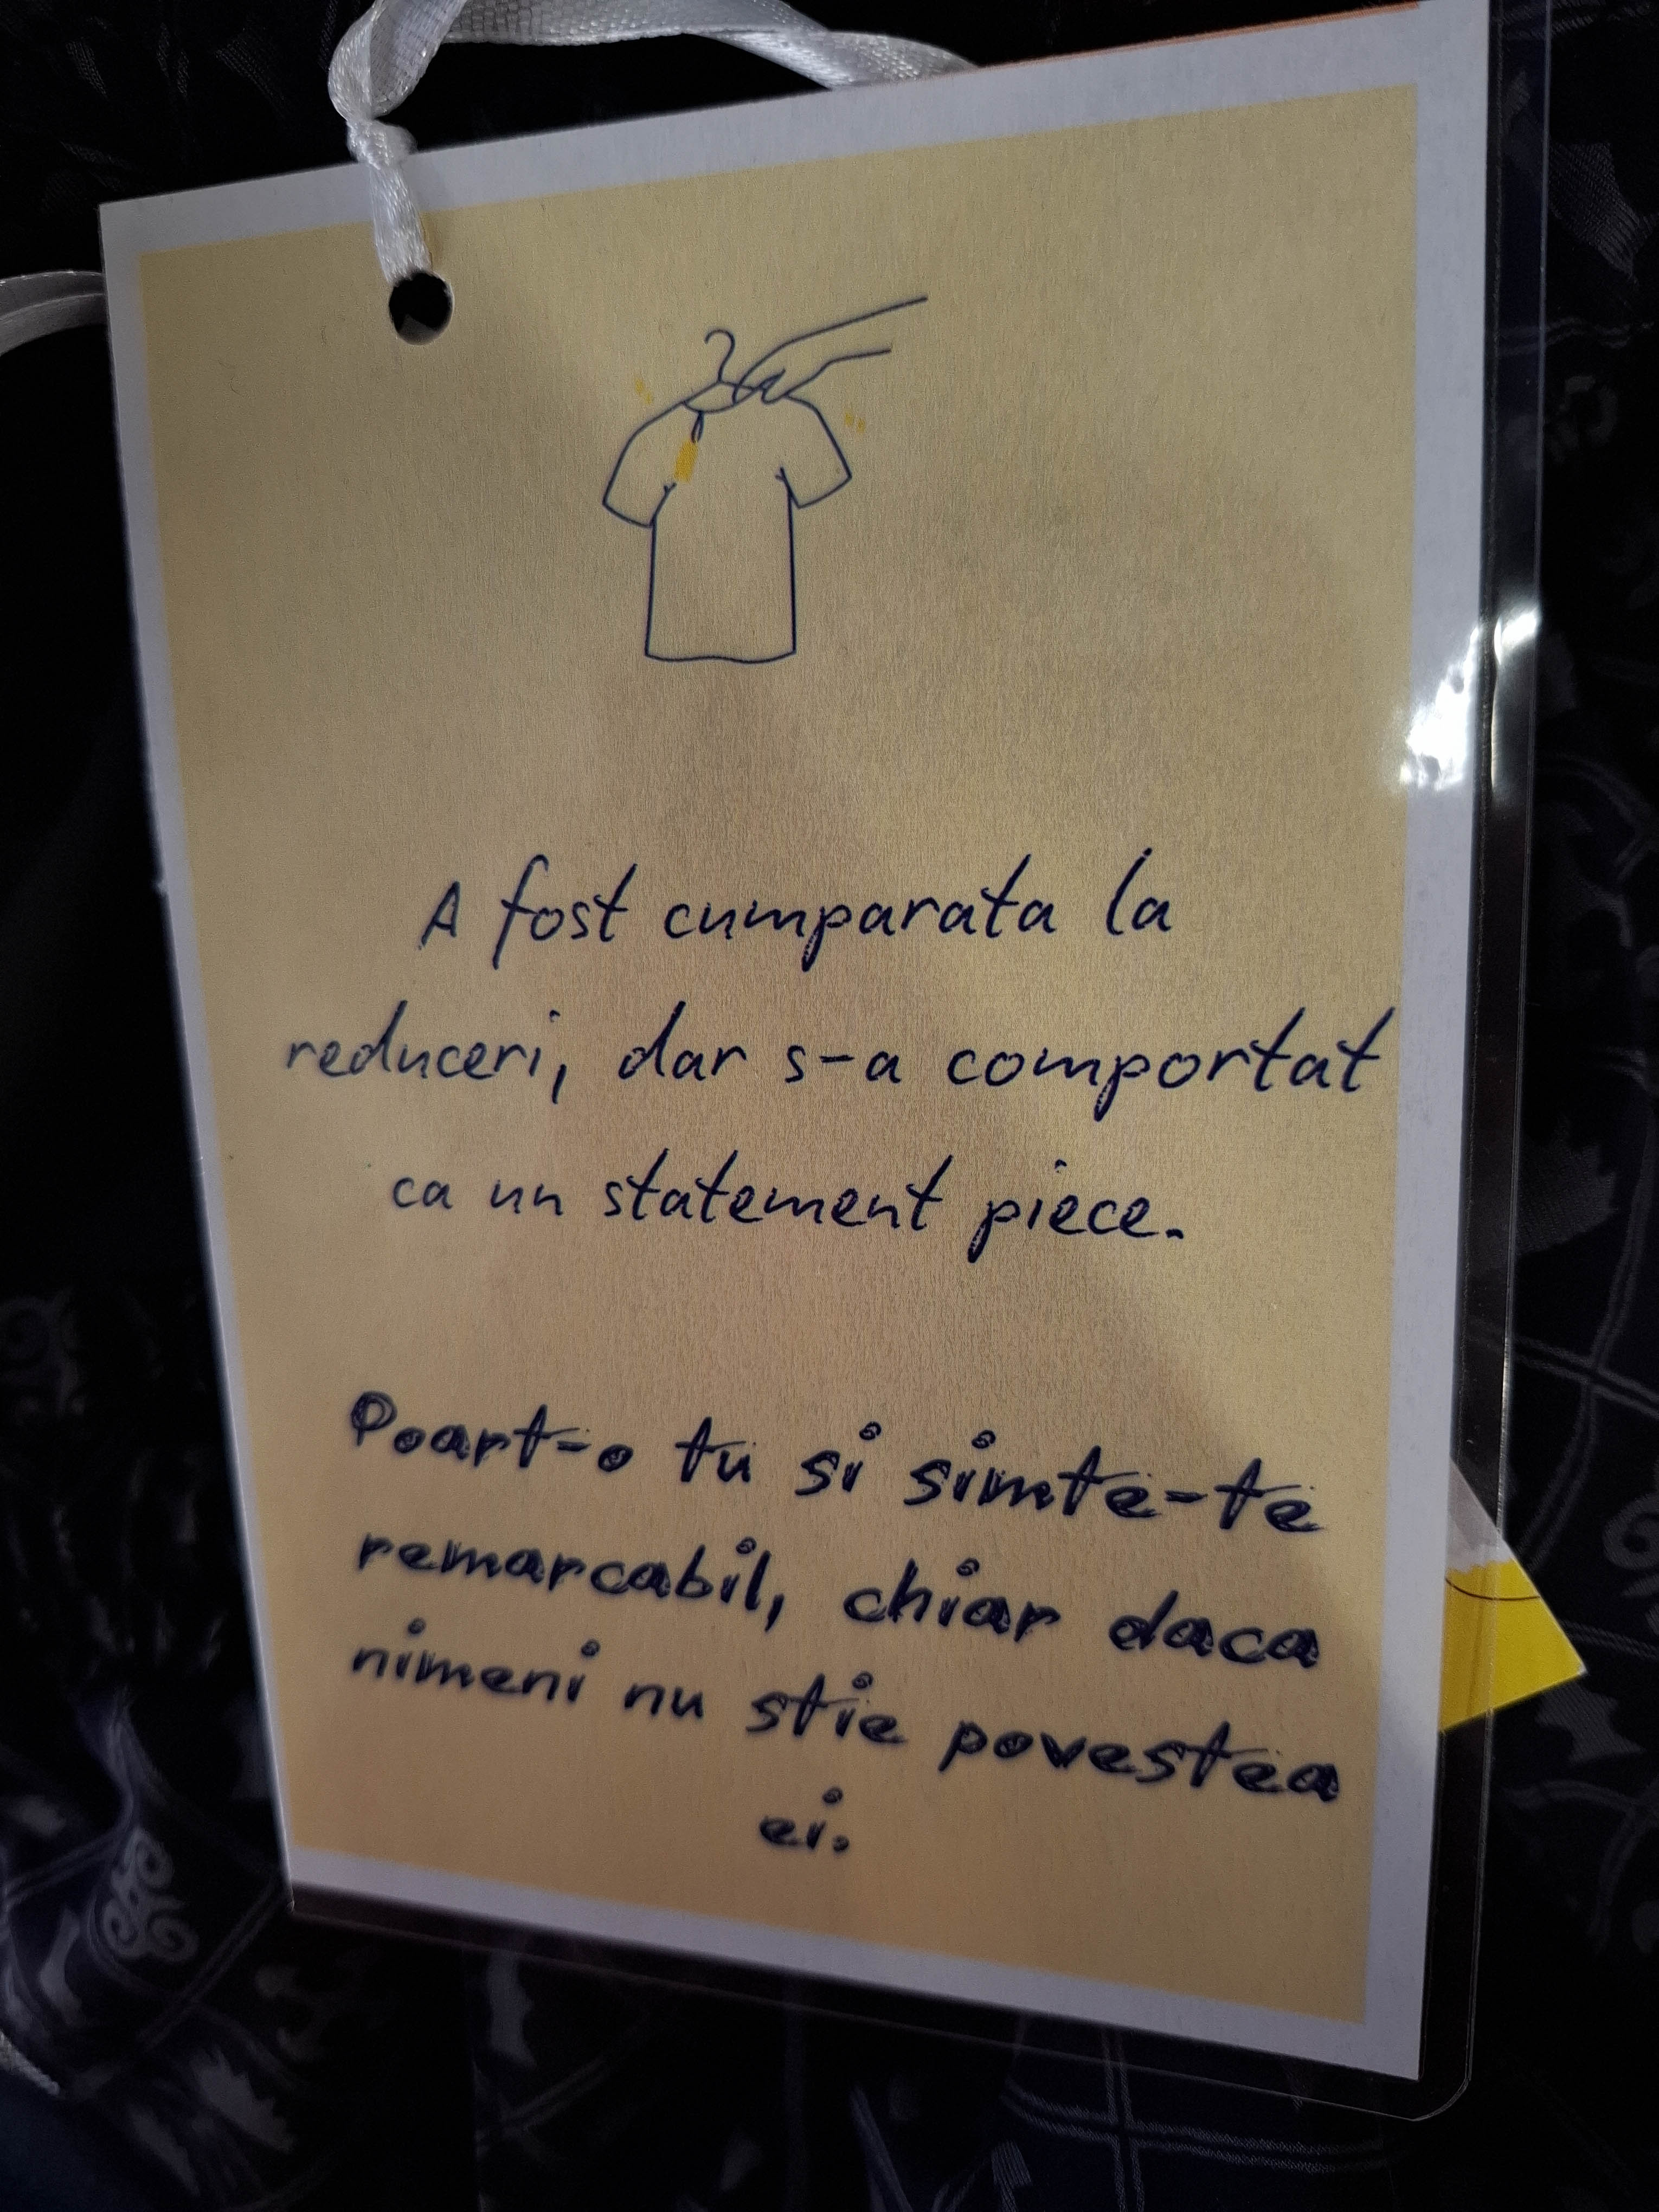 A fost cumparata la
reduceri, dar s-a comportat
ca un statement piece.
Poart-o tu si simte-te
remarcabil, chiar daca
nimeni nu stie povestea
ei.